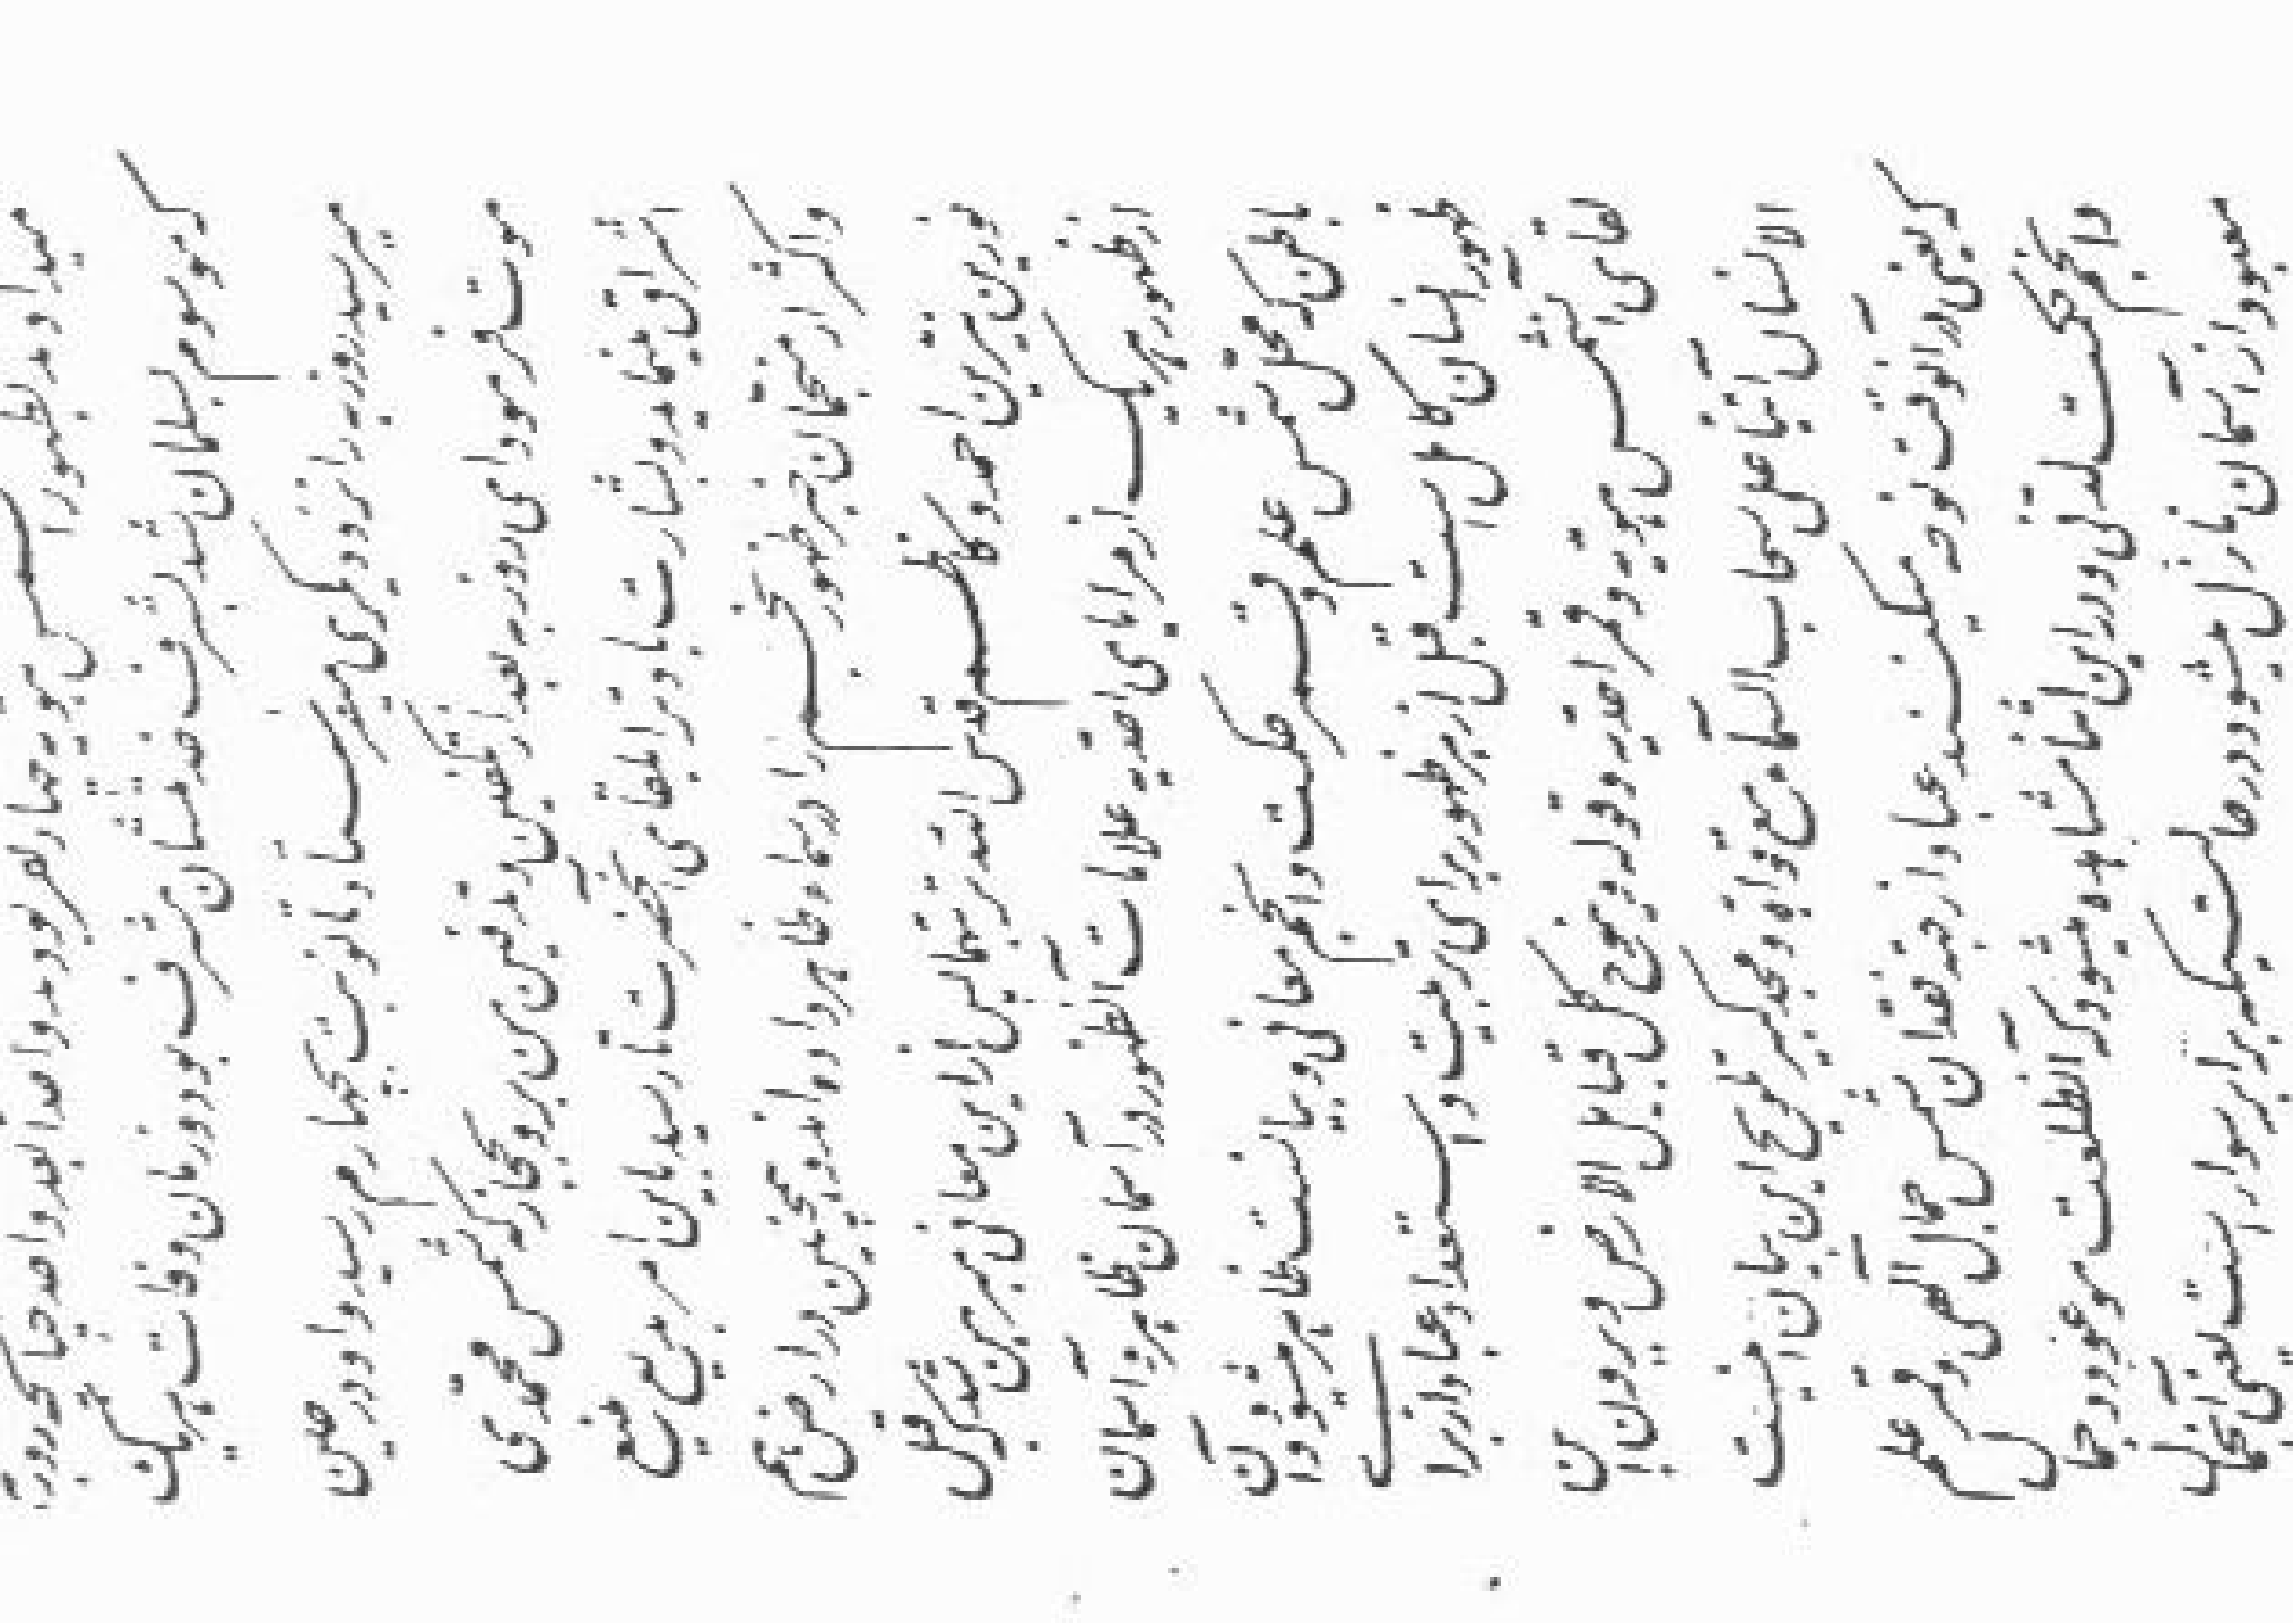 میدادند بظهور آن شمس هویه چهار نفر بودند واحدا بعد واحد چنانچه روزبه
که موسوم بسلمان شد بشرف خدمتشان مشرف بود و زمان وفات هر یک
میرسید روزبه را نزد دیگری میفرستاد تا نوبت بچهارم رسید و او در حین
موت فرمود ای روزبه بعد از تکفین و تدفین من برو بحجاز که شمس محمدی
اشراق مینماید و بشارت باد ترا بلقای آنحضرت تا رسید باین امر بدیع منیع
و اکثر از منجمان خبر ظهور نجم را در سماء ظاهره داده‌اند و همچنین در ارض هم
نورین نیرین احمد و کاظم قدس الله تربتهما پس از این معانی مبرهن شد که قبل
از ظهور هر یک از مرایای احدیه علامات آن ظهور در آسمان ظاهره و آسمان
باطن که محل شمس علم و قمر حکمت و انجم معانی و بیانست ظاهر میشود و آن
ظهور انسان کامل است قبل از هر ظهور برای تربیت و استعداد عباد از برای
لقای آن شمس هویه و قمر احدیه و قوله وینوح کل قبایل الارض و یرون ابن
الانسان آتیا علی سحاب السماء مع قوات و مجد کبیر تلویح این بیان اینست
که یعنی در آنوقت نوحه میکنند عباد از جهة فقدان شمس جمال الهی و قمر علم
و انجم حکمت لدنی و در این اثنا مشاهده میشود که آن طلعت موعود و جمال
معبود از آسمان نازل میشود و در حالتیکه بر ابر سوار است یعنی آن جمال